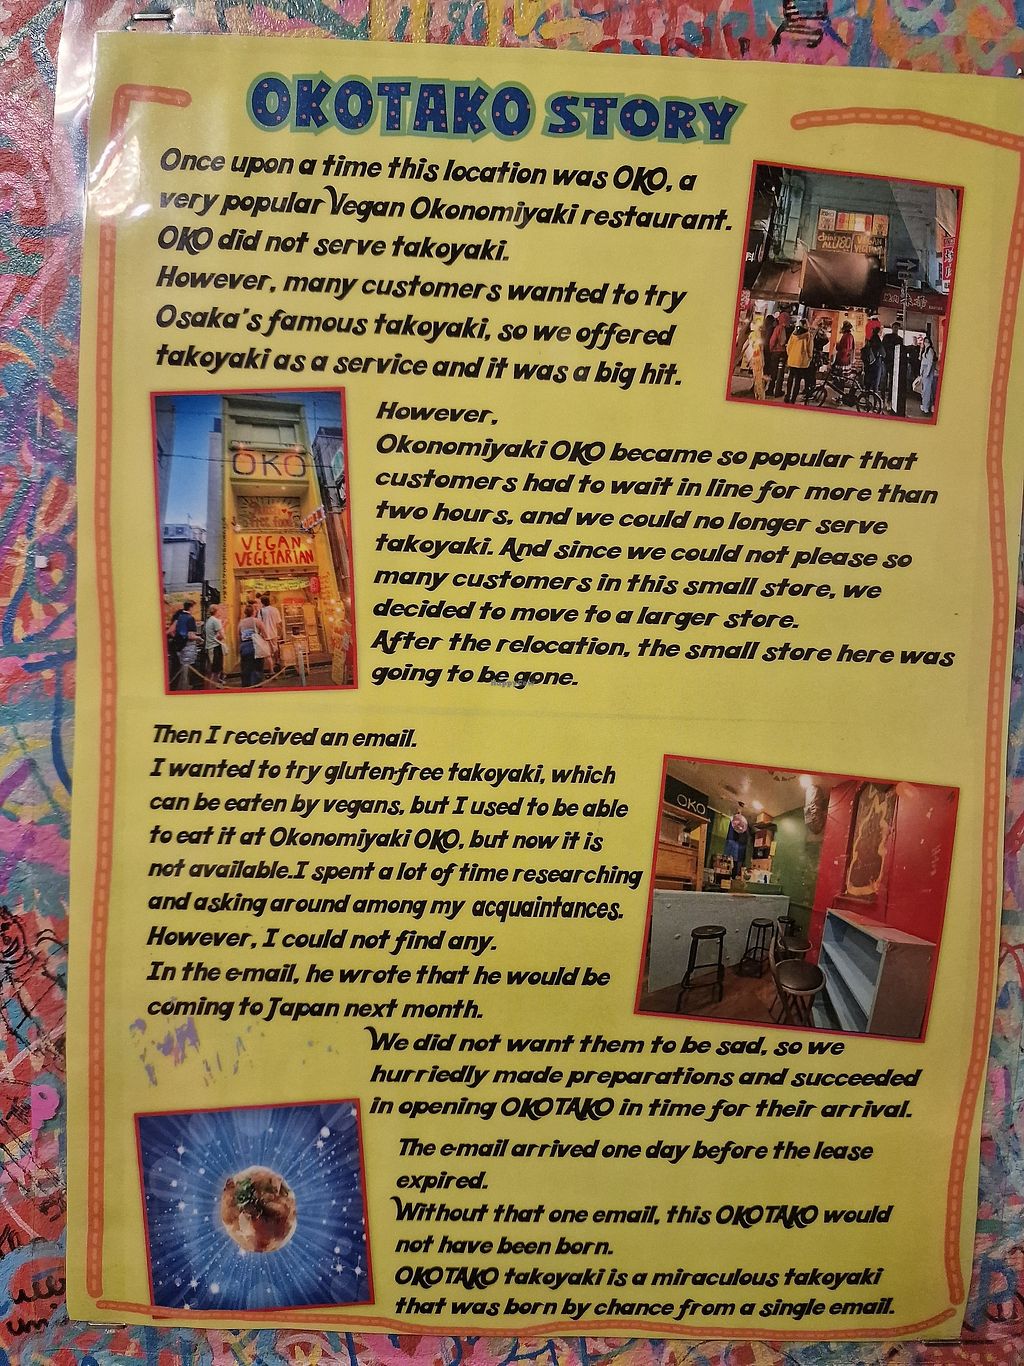 OKOTAKO STORY
Once upon a time this location was OKO, a
very popular Vegan Okonomiyaki restaurant.
OKO did not serve takoyaki.
However, many customers wanted to try
Osaka's famous takoyaki, so we offered
takoyaki as a service and it was a big hit.
OKO
VEGAN
VEGETARIAN
However,
Okonomiyaki OKO became so popular that
customers had to wait in line for more than
two hours, and we could no longer serve
takoyaki. And since we could not please so
many customers in this small store, we
decided to move to a larger store.
After the relocation, the small store here was
going to be gone.
Then I received an email.
I wanted to try gluten-free takoyaki, which
can be eaten by vegans, but I used to be able
to eat it at Okonomiyaki OKO, but now it is
not available.I spent a lot of time researching
and asking around among my acquaintances.
However, I could not find any.
In the e-mail, he wrote that he would be
coming to Japan next month.
OKO
We did not want them to be sad, so we
hurriedly made preparations and succeeded
in opening OKOTAKO in time for their arrival.
The e-mail arrived one day before the lease
expired.
Without that one email, this OKOTAKO would
not have been born.
OKOTAKO takoyaki is a miraculous takoyaki
that was born by chance from a single email.